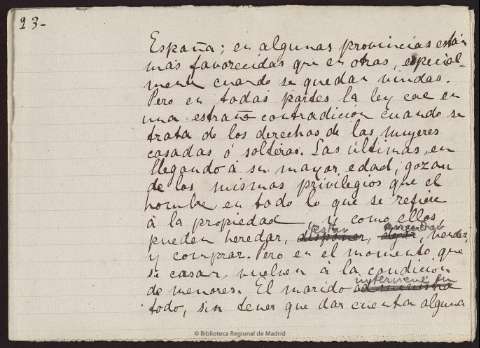 23-
España; en algunas provincias están
más favorecidas que en otras, especial-
mente cuando se quedan viudas.
Pero en todas partes la ley cae en
una estraña contradicion cuando se
trata de los derechos de las mujeres
casadas ó solteras. Las últimas, en
llegando á su mayor edad, gozan
de los mismos privilegios que el
hombre en todo lo que se refiere
á la propiedad y como ellos,
pueden heredar, disponer, vender,
y comprar. Pero en el momento que
se casan vuelven á la condicion
de menores. El marido interviene en
todo, sin tener que dar cuenta alguna
© Biblioteca Regional de Madrid